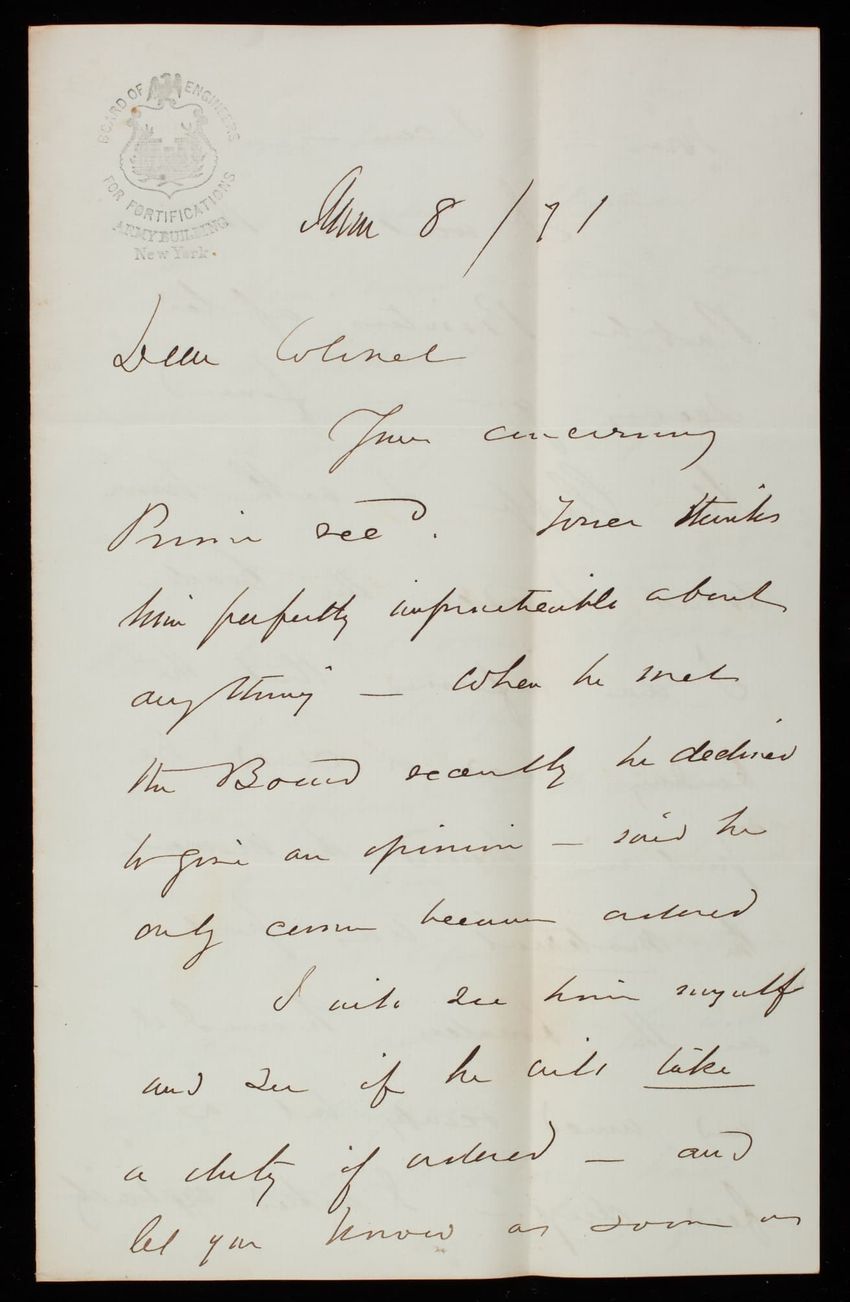 BOARD OF ENGINEERS
FOR FORTIFICATIONS
ARMY BUILDING
New York.
8/71
Dear Colonel
Yours concerning
Prime recd. Tower thinks
him perfectly impracticable about
anything — When he met
the Board recently he declined
to give an opinion — said he
only came because ordered
I will see him myself
and see if he will take
a duty if ordered — and
let you know as soon as